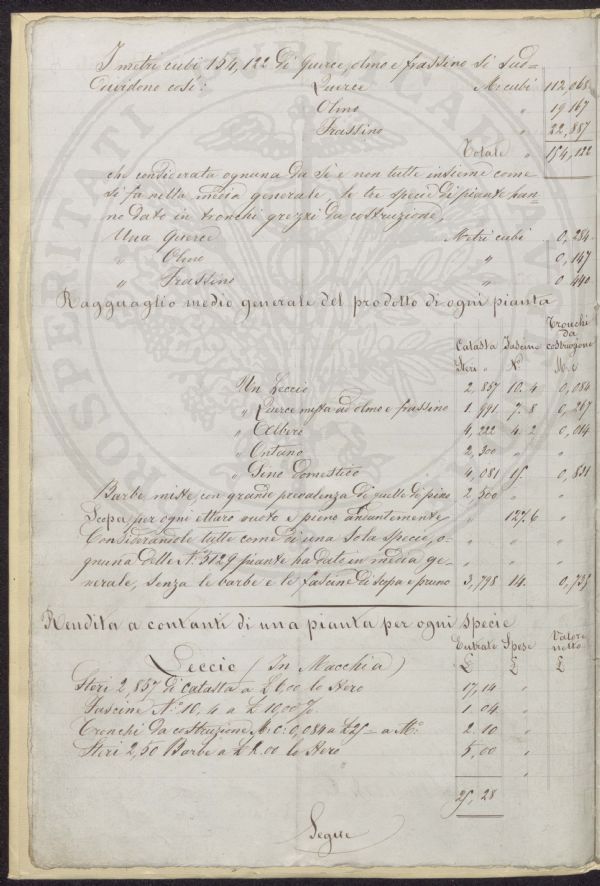 I metri cubi 154,122 di Querce, olmo e frassino si sud=
dividono così: Querce M. cubi 112,068
Olmo " 19,167
Frassino " 22,887
Totale " 154,122
che considerata ognuna da sè e non tutte insieme come
si fa nella media generale le tre specie di piante han=
no dato in tronchi grezzi da costruzione,
Una Querce Metri cubi 0,284
" Olmo " 0,147
" Frassino " 0,440
Ragguaglio medio generale del prodotto di ogni pianta
Catasta Fascine Tronchi da costruzione
Steri " N.º M. c
Un Leccio 2,857 10.4 0,084
" Querce mista ad olmo e frassino 1.991 7.8 0,267
" Albero 4,222 4.2 0,014
" Ontano 2,300 " "
" Pino domestico 4,081 15. 0,821
Barbe miste con grande prevalenza di quelle di pino 2,500 " "
Scopa, per ogni ettaro vuoto e pieno andantemente " 127.6 "
Considerandole tutte come di una sola specie, o= " " "
gnuna delle N.º 5129 piante ha dato in media ge= " " "
nerale, senza le barbe e le fascine di scopa e pruno 3,798 14. 0,735
Rendita a contanti di una pianta per ogni specie
Entrate Spese Valore netto
£ £ £
Leccio (In Macchia)
Steri 2,857 di catasta a £ 6,00 lo stero 17,14 "
Fascine N.º 10,4 a £ 10,00 % 1.04 "
Tronchi da costruzione M: c: 0,084 a £ 25 = a M.º 2.10 "
Steri 2,50 Barbe a £ 2.00 lo stero 5,00 "
25,28
Segue